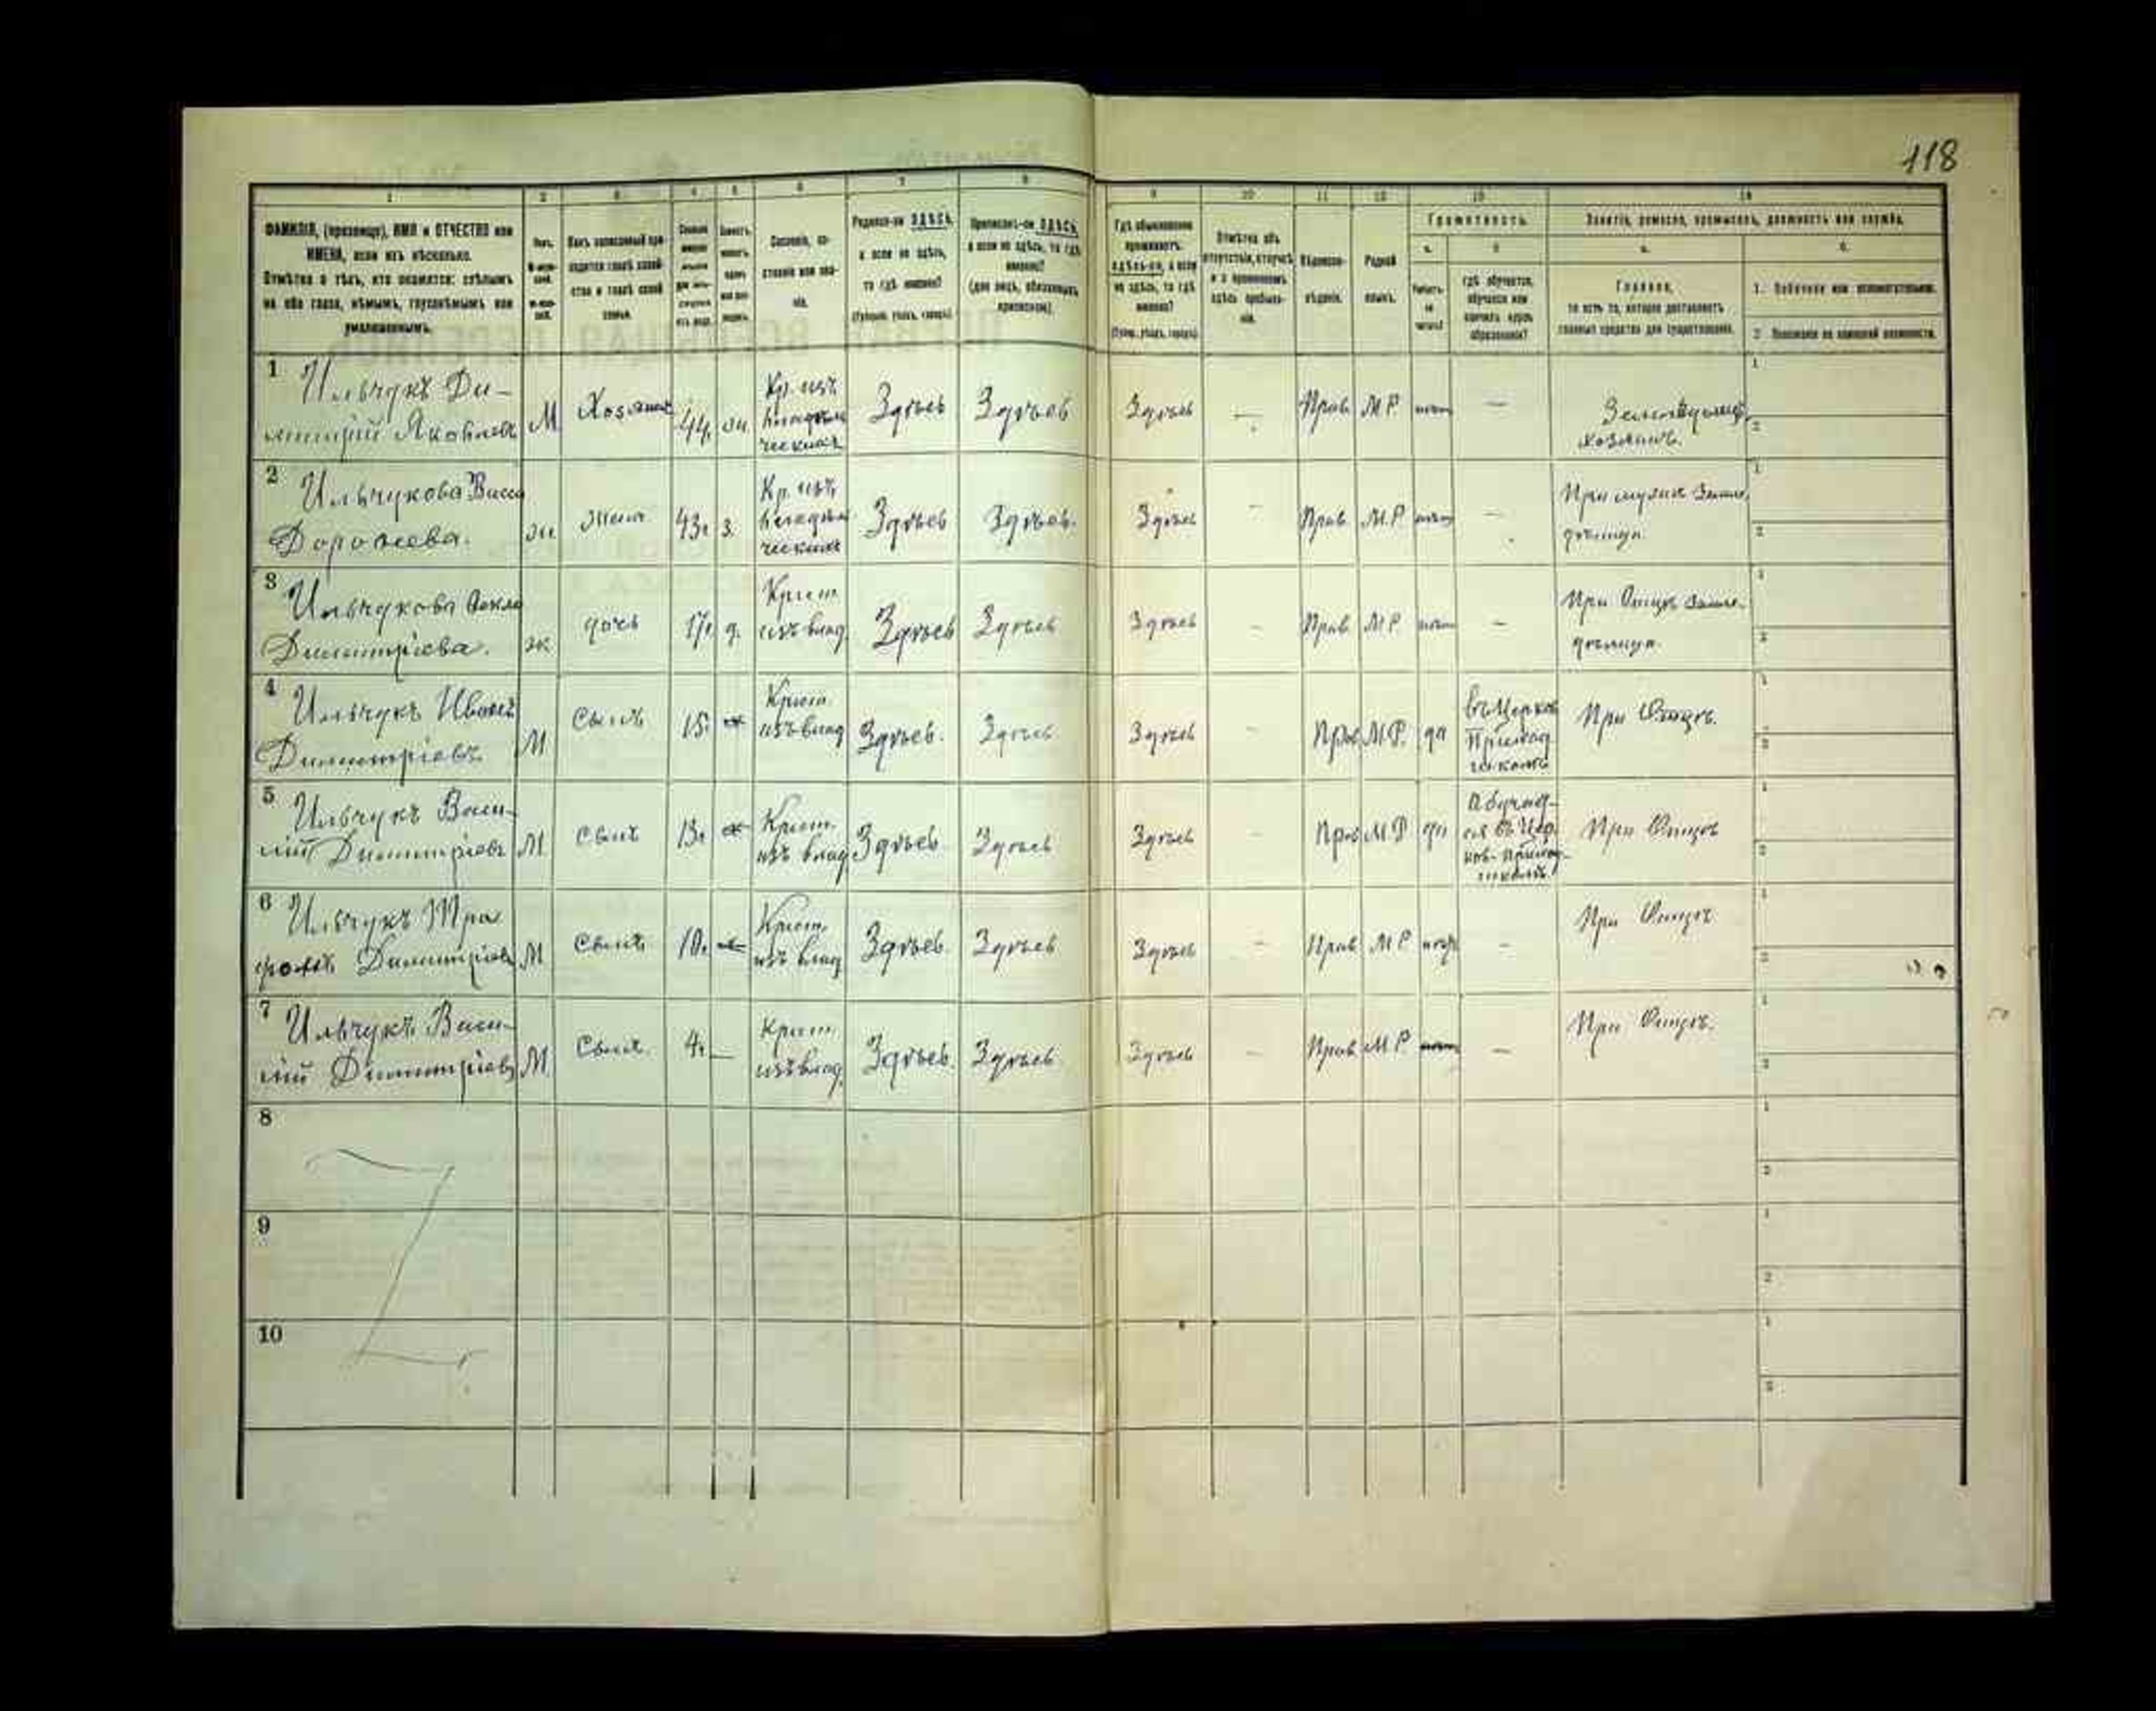 118
1 2 3 4 5 6 7 8 9 10 11 12 13 14
ФАМИЛІЯ, (прозвище), ИМЯ и ОТЧЕСТВО или
ИМЕНА, если ихъ нѣсколько.
Отмѣтка о тѣхъ, кто окажется: слѣпымъ
на оба глаза, нѣмымъ, глухонѣмымъ или
умалишеннымъ.
Родился-ли ЗДѢСЬ,
а если не здѣсь,
то гдѣ именно?
Приписанъ-ли ЗДѢСЬ,
а если не здѣсь, то гдѣ
именно?
(для лицъ, обязанныхъ
припиской)
Гдѣ обыкновенно
проживаетъ:
здѣсь-ли, а если
не здѣсь, то гдѣ
именно?
Отмѣтка объ
отсутствіи, отлучкѣ
и о временномъ
здѣсь пребыва-
ніи.
Вѣроиспо-
вѣданіе.
Родной
языкъ.
Грамотность.
а. б.
гдѣ обучается,
обучался или
кончилъ курсъ
образованія?
Занятіе, ремесло, промыселъ, должность или служба.
а. б.
Главное,
то есть то, которое доставляетъ
главныя средства для существованія.
1. Побочное или вспомогательное.
2. Положеніе по воинской повинности.
1 Ильчукъ Ди-
митрій Яковлевъ
М Хозяинъ 44 ж.
Кр. изъ
владѣль
ческихъ
Здѣсь Здѣсь Здѣсь — Прав М.Р. —
Земледѣлец,
хозяинъ.
2 Ильчукова Васса
Дорофеева.
ж Жена 43 з.
Кр. изъ
владѣль
ческихъ
Здѣсь Здѣсь. Здѣсь — Прав М.Р —
При мужѣ Земле-
дѣлица
3 Ильчукова Фекла
Димитріева.
ж дочь 17 д.
Крест.
изъ влад.
Здѣсь Здѣсь Здѣсь — Прав М.Р —
При Отцѣ Земле-
дѣлица
4 Ильчукъ Иванъ
Димитріевъ
М Сынъ 15
Крест.
изъ влад
Здѣсь. Здѣсь Здѣсь — Прав М.Р. да
въ Церков
Приход
школѣ
При Отцѣ.
5 Ильчукъ Васи-
лій Димитріевъ
М Сынъ 13
Крест.
изъ влад
Здѣсь Здѣсь Здѣсь — Прав М.Р да
Обучает-
ся въ Цер
ков-приход-
школѣ
При Отцѣ
6 Ильчукъ Тро
фимъ Димитріевъ
М Сынъ 10
Крест.
изъ влад
Здѣсь Здѣсь Здѣсь — Прав М.Р —
При Отцѣ
7 Ильчукъ Васи-
лій Димитріевъ
М Сынъ 4 —
Крест.
изъ влад.
Здѣсь. Здѣсь Здѣсь — Прав М.Р —
При Отцѣ.
8
9
10